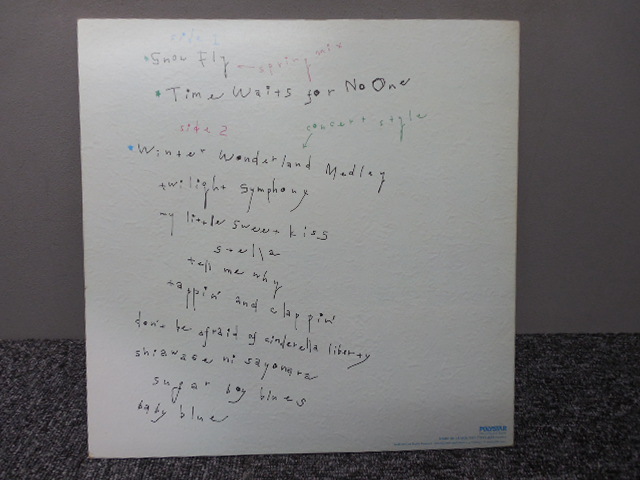 side 1
• Snow Fly ← spring mix
• Time Waits for No One
side 2
concert style
• Winter Wonderland Medley
twilight symphony
my little sweet kiss
stella
tell me why
tappin' and clappin'
don't be afraid of cinderella liberty
shiawase ni sayonara
sugar boy blues
baby blue
POLYSTAR